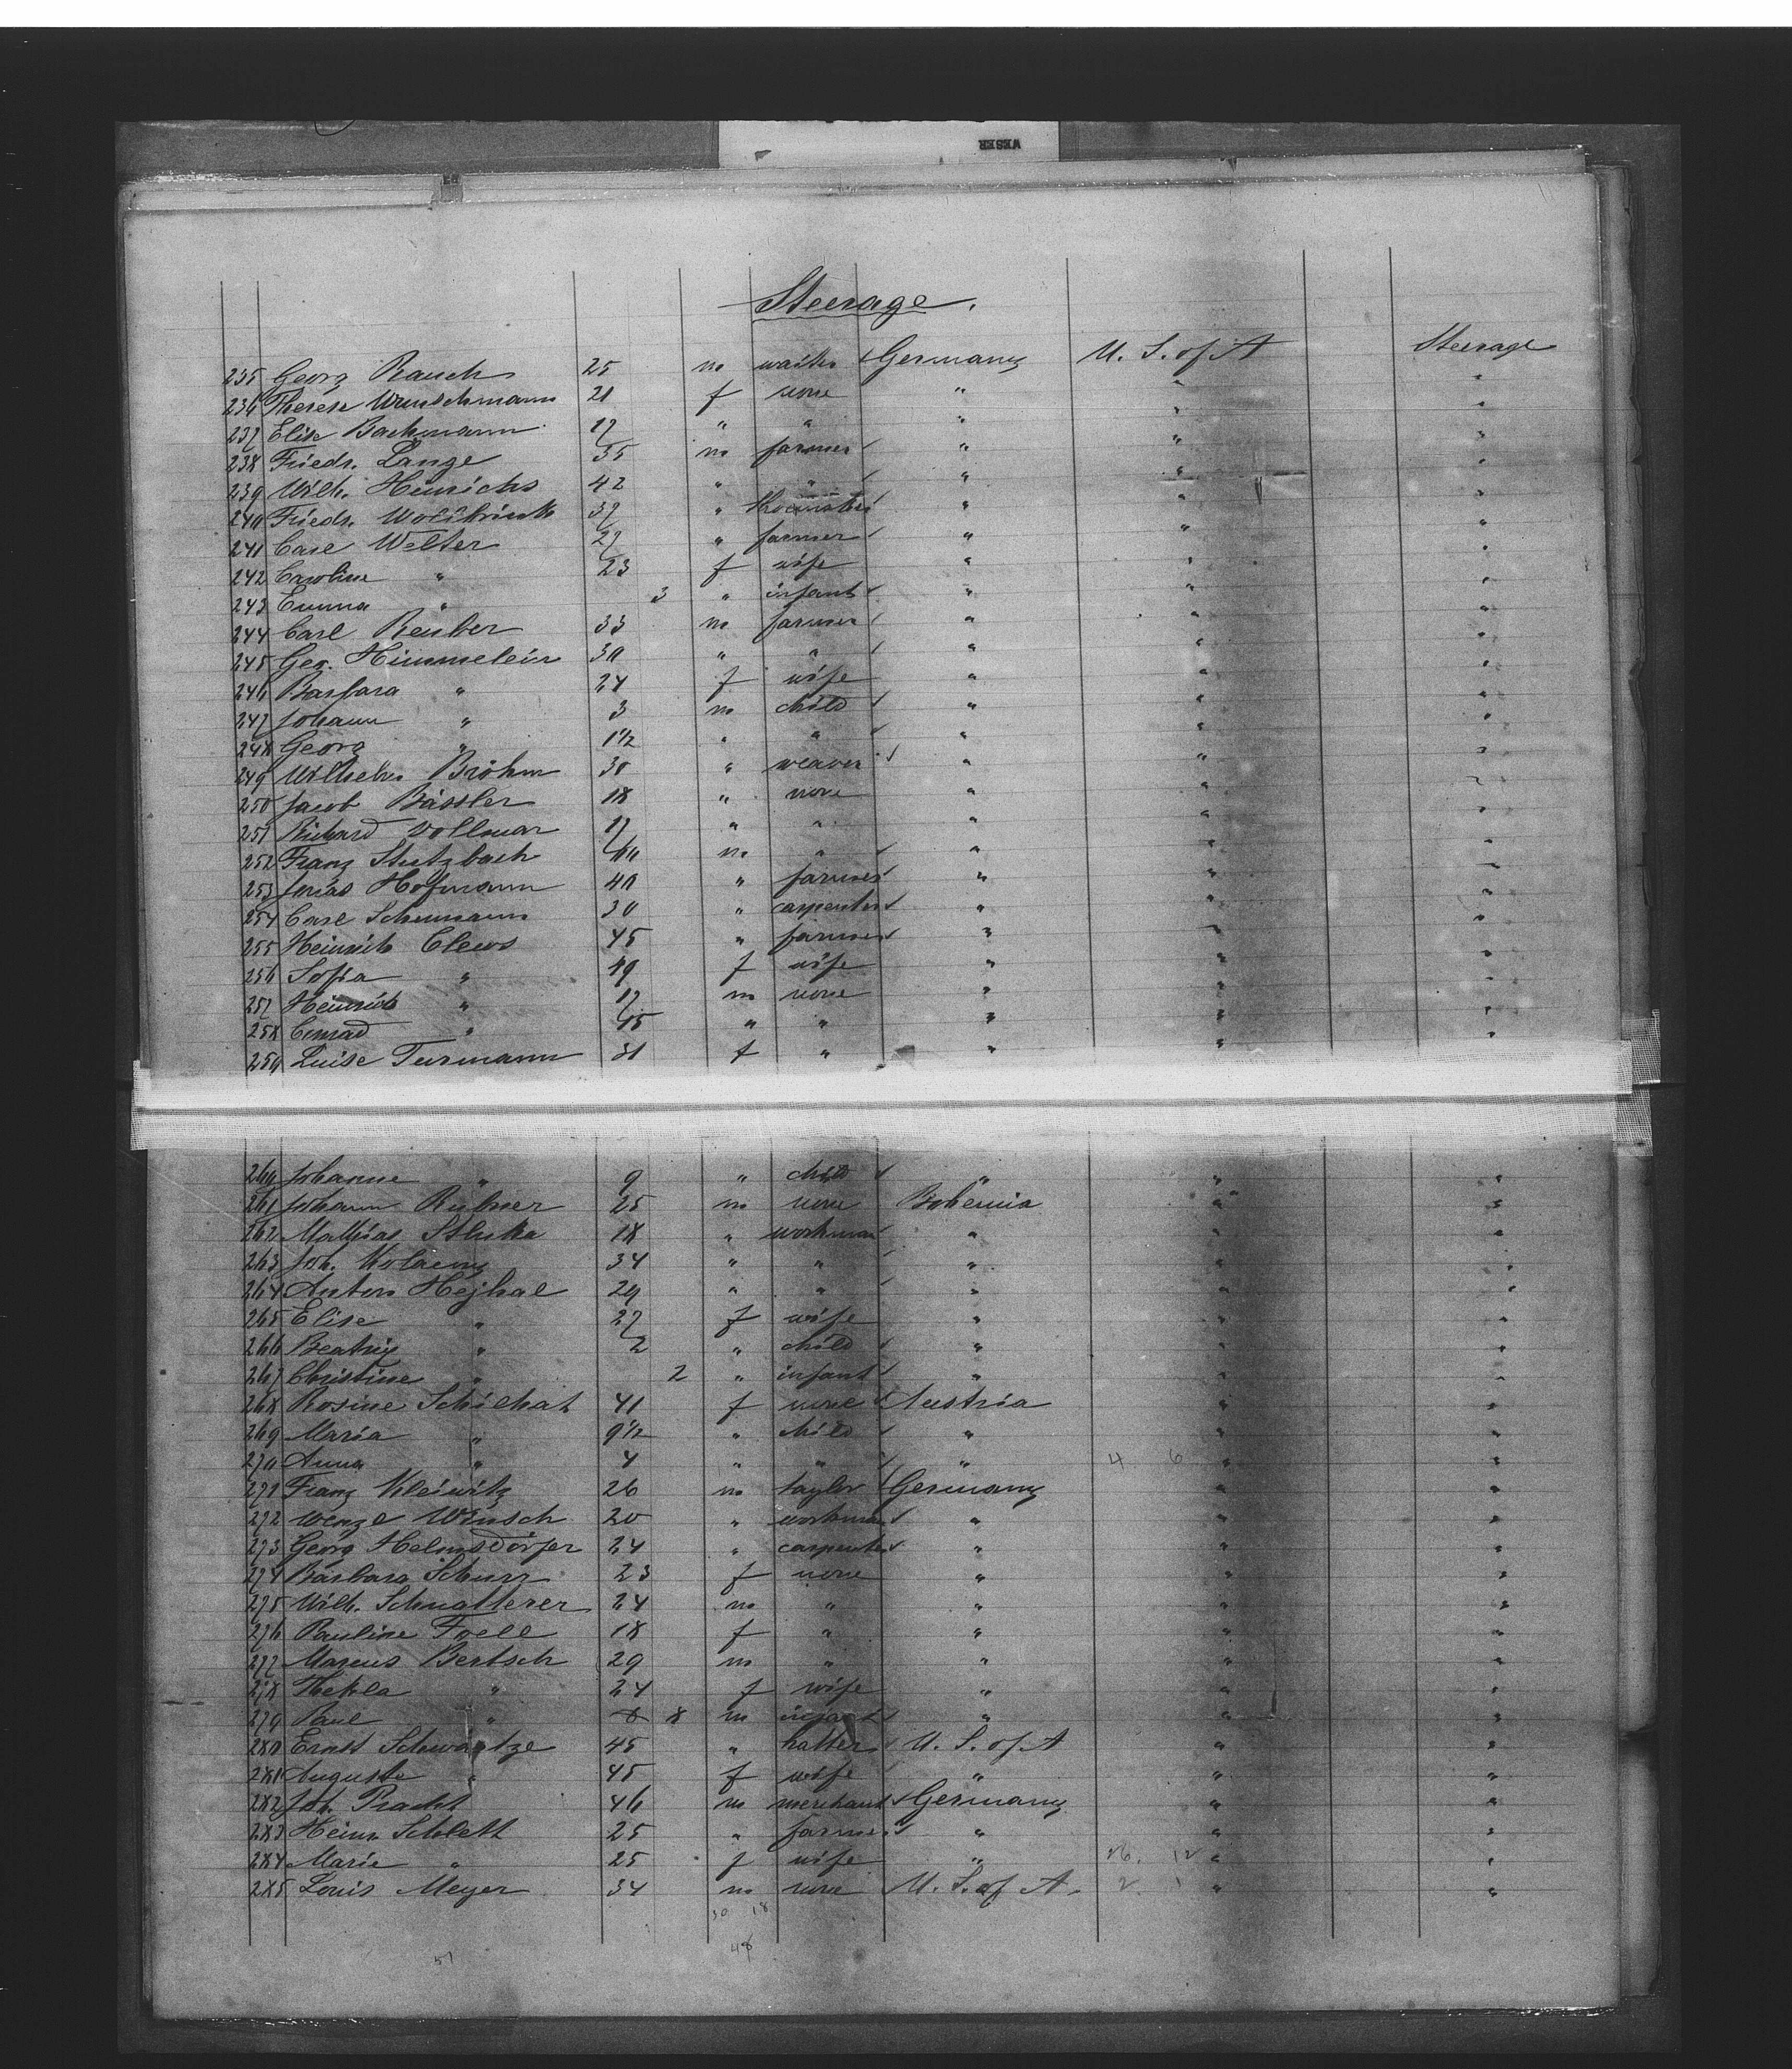 WESER
Steerage.
235 Georg Rauch 25 m waiter Germany U. S. of A Steerage
236 Therese Wunschmann 21 f none " " "
237 Elise Bachmann 17 " " " " "
238 Friedr. Lange 35 m farmer " " "
239 Wilh. Hinrichs 42 " " " " "
240 Friedr. 37 " " " "
241 Carl Welter 27 " farmer " " "
242 Caroline " 23 f wife " " "
243 Emma " 3 " infant " " "
244 Carl Reuber 33 m farmer " " "
245 Geo. Himmelein 30 " " " " "
246 Barbara " 24 f wife " " "
247 Johann " 3 m child " " "
248 Georg " 1 1/2 " " " " "
249 Wilhelm Bröhm 30 " weaver " " "
250 Jacob Bässler 18 " none " " "
251 Richard Vollmar 17 " " " " "
252 Franz Stutzbach m " " " "
253 Jonas Hofmann 40 " farmer " " "
254 Carl Schumann 30 " carpenter " " "
255 Heinrich Clews 45 " farmer " " "
256 Sofia " 49 f wife " " "
257 Heinrich " 17 m none " " "
258 Conrad " 15 " " " " "
259 Luise Turmann 31 f " " " "
260 Johanne " 9 " child " " "
261 Johann 25 m none Bohemia " "
262 Mathias Stluka 18 " workman " " "
263 Joh. 34 " " " " "
264 Anton Hejhal 29 " " " " "
265 Elise " 27 f wife " " "
266 Beatrix " 2 " child " " "
267 Christine " 2 " infant " " "
268 Rosine Schilhat 41 f none Austria " "
269 Maria " 9 1/2 " child " " "
270 Anna " 4 " " " 4 6 " "
271 Franz Kleiwitz 26 m taylor Germany " "
272 Wenzl Wünsch 20 " workman " " "
273 Georg Helmsdörfer 24 " carpenter " " "
274 Barbara Schurr 23 f none " " "
275 Wilh. Schnatterer 24 m " " " "
276 Pauline Foell 18 f " " " "
277 Marcus Bertsch 29 m " " " "
278 Thekla " 24 f wife " " "
279 Paul " 8 m infant " " "
280 Ernst Schwartze 45 " hatter U. S. of A " "
281 Auguste " 45 f wife " " "
282 Joh. Pracht 46 m merchant Germany " "
283 Heinr. Schlett 25 " farmer " " "
284 Marie " 25 f wife " 26. 12 " "
285 Louis Meyer 34 m none U. S. of A. 2 1 " "
30 18
48
51